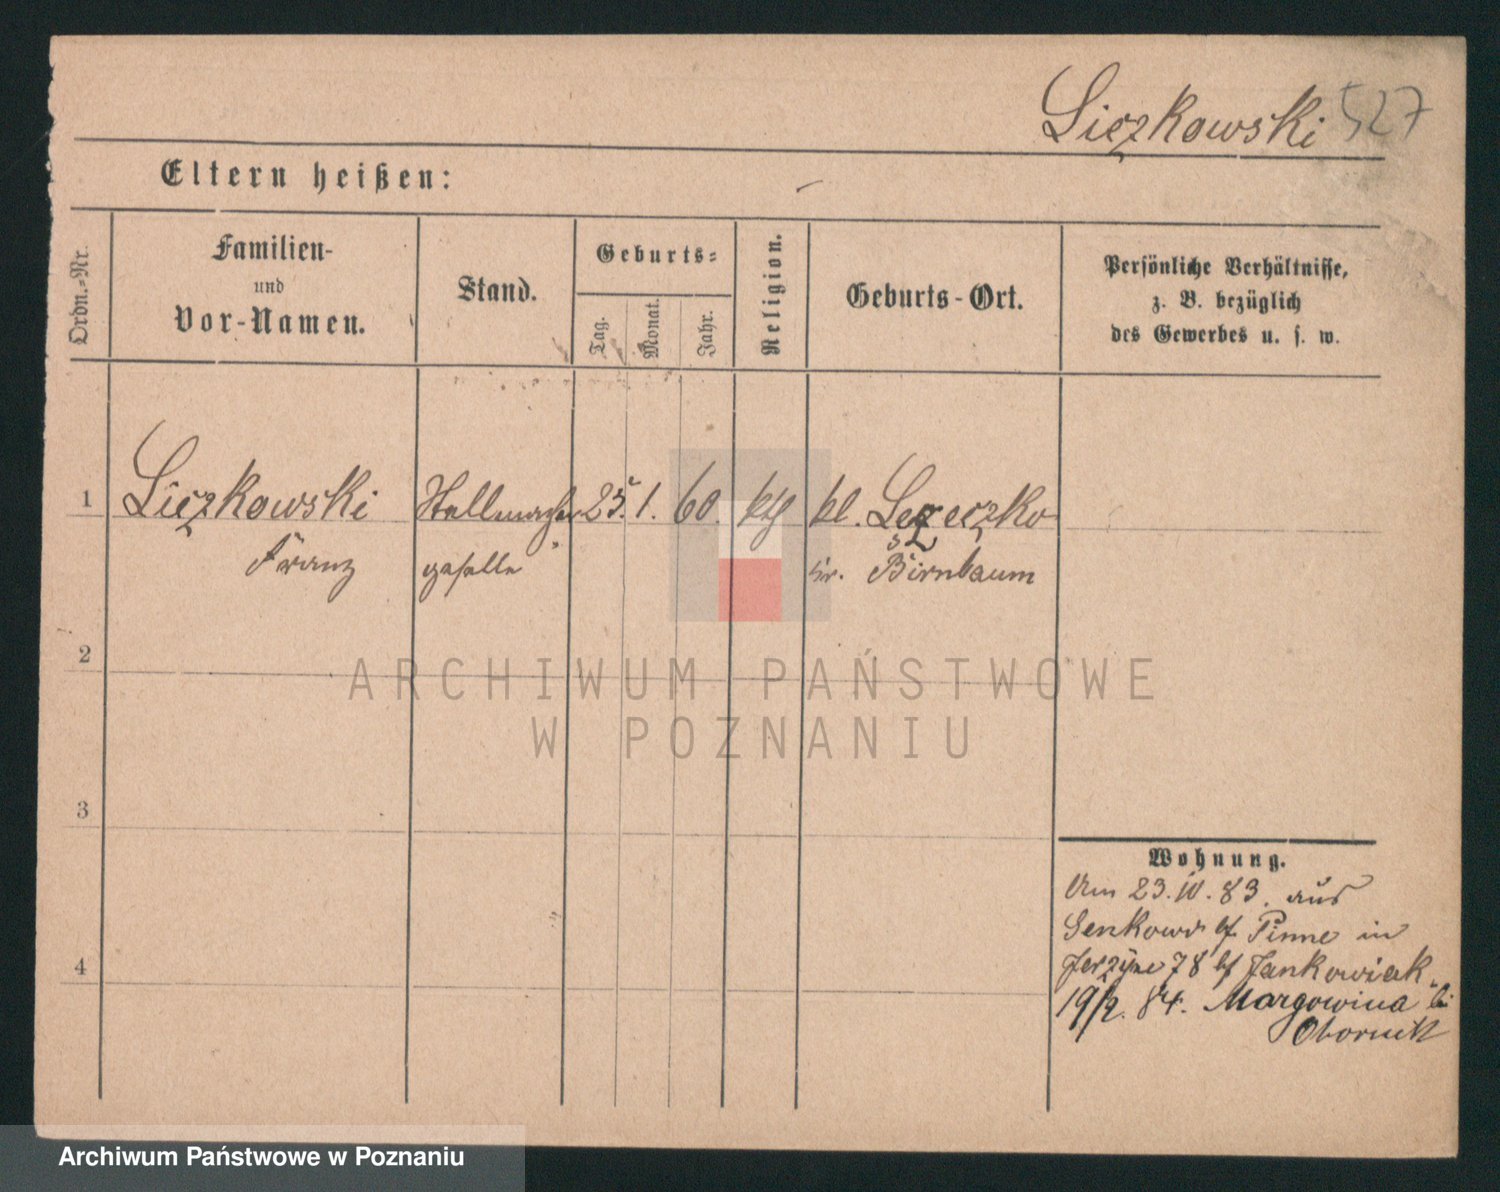 Liczkowski 527
Eltern heißen:
Ordn.-Nr.
Familien-
und
Vor-Namen.
Stand.
Geburts-
Tag.
Monat.
Jahr.
Religion.
Geburts-Ort.
Persönliche Verhältnisse,
z. B. bezüglich
des Gewerbes u. s. w.
1 Liczkowski Stellmacher 25. 1. 60. kth kl.
Franz geselle Kr. Birnbaum
2
3
4
Wohnung.
Am 23. IV. 83. aus
bf Pinne in
78 bf Jankowiak
19/2. 84. Margowina bei
Obornik
ARCHIWUM PAŃSTWOWE
W POZNANIU
Archiwum Państwowe w Poznaniu